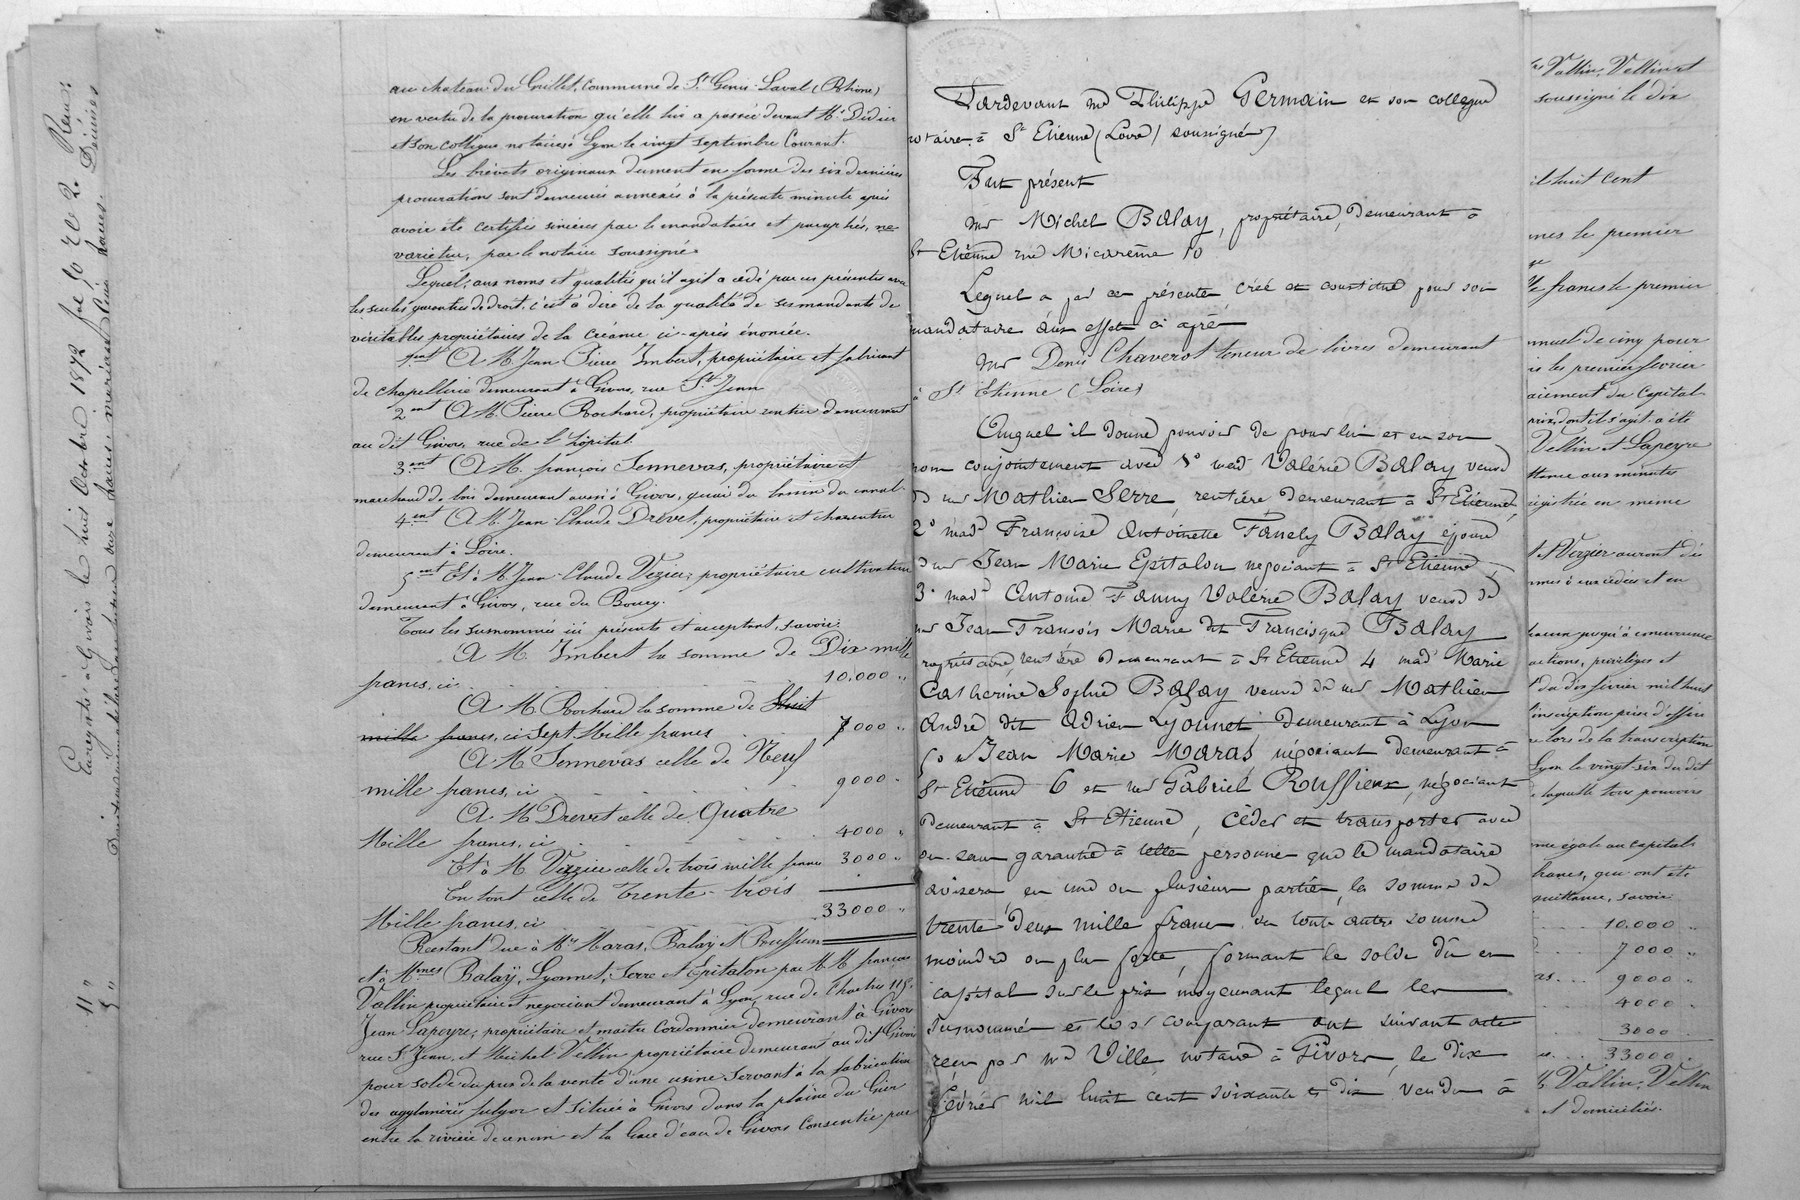 au chateau du Guillet, commune de St Genis-Laval (Rhône)
en vertu de la procuration qu'elle lui a passée devant Me Didier
et son collègue notaires à Lyon le vingt septembre Courant.
Les brévets originaux dument en forme des six dernières
procurations sont demeurés annexés à la présente minute après
avoir été certifiés sincères par le mandataire et paraphés, ne
varietur, par le notaire soussigné.
Lequel, aux noms et qualités qu'il agit a cédé par ces présentes avec
les seules garanties de droit, c'est à dire de la qualité de ses mandants de
véritables propriétaires de la créance ci-après énoncée.
1ent A M. Jean Pierre Imbert, propriétaire et fabricant
de chapellerie demeurant à Givors, rue St Jean
2ent A M. Pierre Rochard, propriétaire rentier demeurant
au dit Givors, rue de l'hôpital.
3ent A M. françois Jennevas, propriétaire et
marchand de bois demeurant aussi à Givors, quai du bassin du canal.
4ent A M. Jean Claude Drevet, propriétaire et charcutier
demeurant à Loire.
5ent Et à M. Jean-Claude Vezier, propriétaire cultivateur
demeurant à Givors, rue du Bourg.
Tous les susnommés ici présents et acceptant, savoir:
A M. Imbert la somme de Dix mille
francs, ci 10.000 "
A M. Rochard la somme de Huit
mille francs, ci Sept Mille francs 7000 "
A M. Jennevas celle de Neuf
mille francs, ci 9000 "
A M. Drevet celle de Quatre
Mille francs, ci 4000 "
Et à M. Vezier celle de trois mille francs 3000 "
En tout celle de Trente-trois
Mille francs, ci 33000 "
Restant due à Mrs Maras, Balaÿ et Roussieux
et à Mmes Balaÿ, Lyonnet, Serre et Epitalon par MM. françois
Vallin propriétaire et négociant demeurant à Lyon, rue de Chartres 115,
Jean Lapeyre, propriétaire et maître Cordonnier demeurant à Givors
rue St Jean, et Michel Vellin propriétaire demeurant au dit Givors
pour solde du prix de la vente d'une usine servant à la fabrication
des agglomérés fulgor et située à Givors dans la plaine du Gier
entre la rivière de ce nom et la Gare d'eau de Givors Consentie par
Enregistré à Givors le huit Octobre 1872 fol 50 re c 2. Reçu:
Pardevant me Philippe Germain et son collegue
notaires à St Etienne (Loire) soussignés
Fut présent
mr Michel Balay, propriétaire, demeurant à
St Etienne rue Micarême 10
Lequel a par ces présentes créé et constitué pour son
mandataire aux effets ci après
mr Denis Chaverot teneur de livres demeurant
à St Etienne (Loire)
Auquel il donne pouvoir de pour lui et en son
nom conjointement avec 1° mad Valérie Balay veuve
de mr Mathieu Serre, rentière demeurant à St Etienne,
2° made Françoise Antoinette Fanely Balay épouse
de mr Jean Marie Epitalon négociant à St Etienne,
3° made Antoine Fanny Valérie Balay veuve de
mr Jean François Marie dit Francisque Balay
propriétaire, rentière demeurant à St Etienne 4 made Marie
Catherine Sophie Balay veuve de mr Mathieu
André dit Adrien Lyonnet, demeurant à Lyon
5° mr Jean Marie Maras négociant demeurant à
St Etienne 6 et mr Gabriel Roussieux, négociant
demeurant à St Etienne, céder et transporter avec
ou sans garantie à telles personne que le mandataire
avisera, en une ou plusieurs parties, la somme de
trente deux mille francs ou toute autre somme
moindre ou plus forte, formant le solde dû en
capital sur le prix moyennant lequel les
susnommés et le sr comparant ont suivant acte
reçu par me Ville notaire à Givors, le dix
février mil huit cent soixante et dix vendu à
Vallin, Vellin et
soussigné le dix
mil huit cent
le premier
francs le premier
annuel de cinq pour
les premier février
paiement du Capital
prix, dont il s'agit a été
Vellin et Lapeyre
aux minutes
registrée en meme
et Vezier auront dès
à eux cédées et en
chacun jusqu'à concurrence
actions, privilèges et
du dix février mil huit
l'inscription prise d'office
lors de la transcription
Lyon le vingt six du dit
laquelle tous pouvoirs
égale au capital
francs, qui ont été
quittance, savoir
10.000 "
7000 "
9000 "
4000 "
3000 "
33000 "
Vallin, Vellin
et domiciliés.